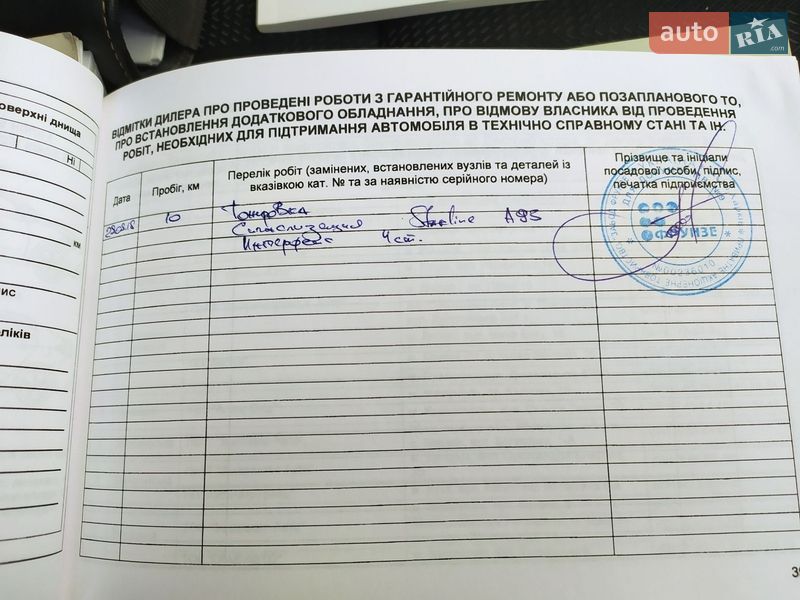 auto RIA .com
оверхні днища
Ні
км
ис
ліків
ВІДМІТКИ ДИЛЕРА ПРО ПРОВЕДЕНІ РОБОТИ З ГАРАНТІЙНОГО РЕМОНТУ АБО ПОЗАПЛАНОВОГО ТО,
ПРО ВСТАНОВЛЕННЯ ДОДАТКОВОГО ОБЛАДНАННЯ, ПРО ВІДМОВУ ВЛАСНИКА ВІД ПРОВЕДЕННЯ
РОБІТ, НЕОБХІДНИХ ДЛЯ ПІДТРИМАННЯ АВТОМОБІЛЯ В ТЕХНІЧНО СПРАВНОМУ СТАНІ ТА ІН.
Дата
Пробіг, км
Перелік робіт (замінених, встановлених вузлів та деталей із
вказівкою кат. № та за наявністю серійного номера)
Прізвище та ініціали
посадової особи, підпис,
печатка підприємства
10
Тонировка
Сигнализация Starline A95
Интерфейс 4 ст.
ФРУНЗЕ